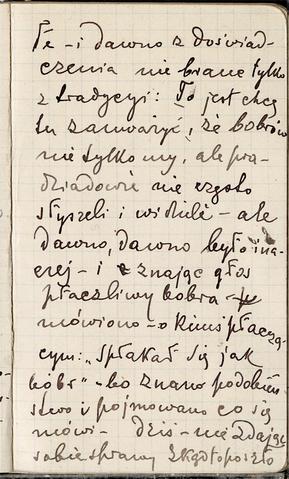 Te - i dawno z doświad-
czenia nie brane tylko
z tradycyi: To jest chcę
tu zauważyć, że bobrów
nie tylko my, ale pra-
dziadowie nie często
słyszeli i widzieli - ale
dawno, dawno było ina-
czej - i znając głos
płaczliwy bobra -
mówiono - o kimś płaczą-
cym: „spłakał się jak
bóbr" - bo znano podobień
stwo i pojmowano co się
mówi - dziś - nie zdając
sobie sprawy zkąd to poszło